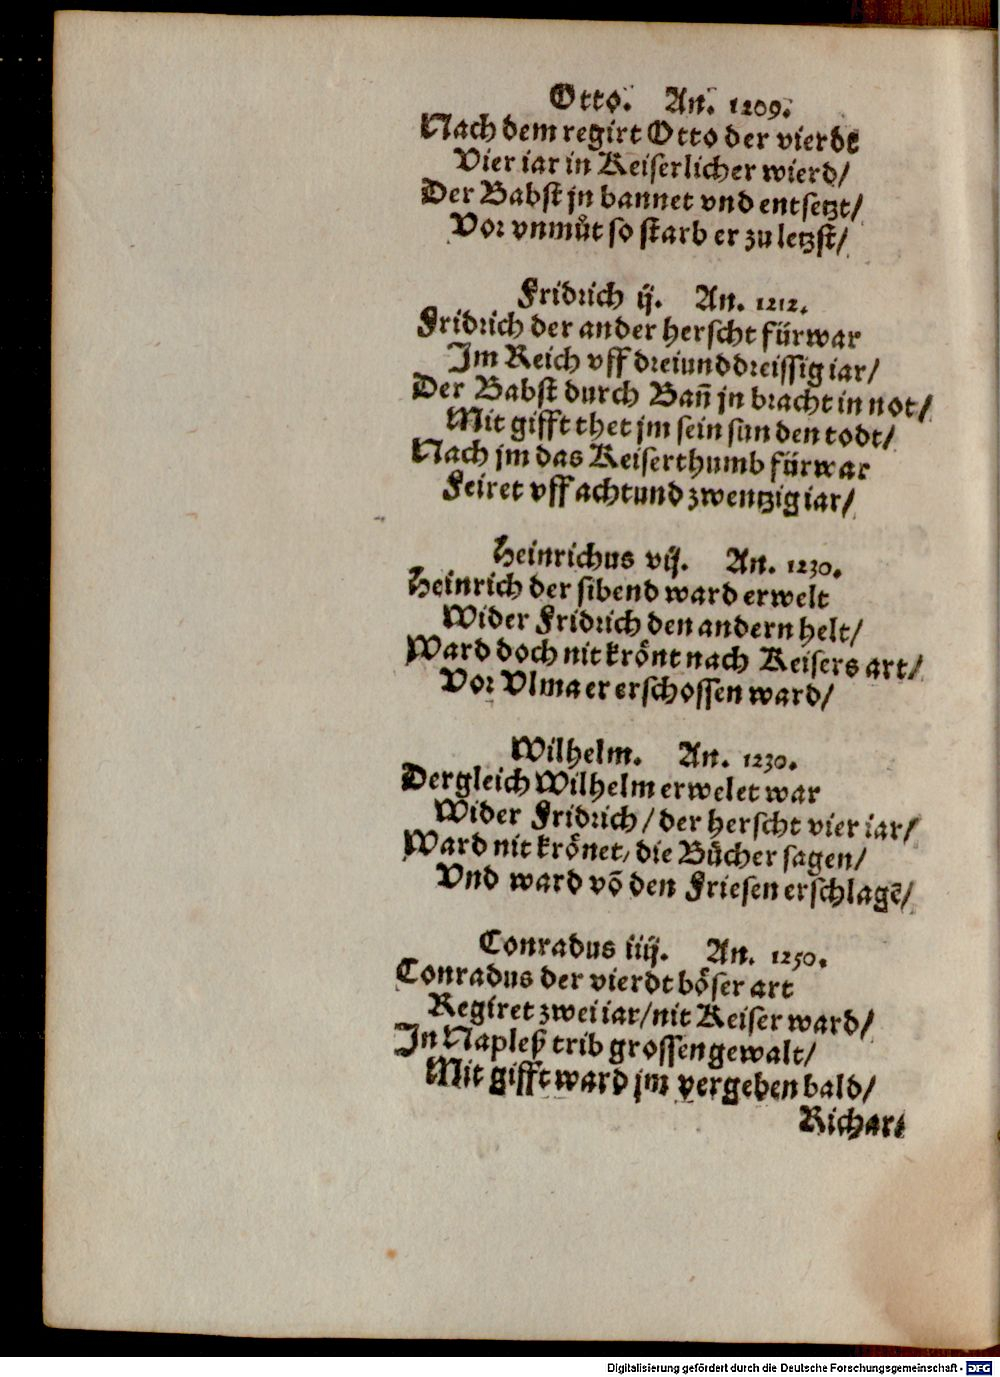 Otto. An. 1209.
Nach dem regirt Otto der vierdt
Vier iar in Keiserlicher wierd/
Der Babst jn bannet vnd entsetzt/
Vor vnmůt so starb er zu letzst/
Fridrich ij. An. 1212.
Fridrich der ander herscht fürwar
Im Reich vff dreiunddreissig iar/
Der Babst durch Bañ jn bracht in not/
Mit gifft thet jm sein sun den todt/
Nach jm das Keiserthumb fürwar
Feiret vff achtund zwentzig iar/
Heinrichus vij. An. 1230.
Heinrich der sibend ward erwelt
Wider Fridrich den andern helt/
Ward doch nit krönt nach Keisers art/
Vor Vlma er erschossen ward/
Wilhelm. An. 1230.
Dergleich Wilhelm erwelet war
Wider Fridrich / der herscht vier iar/
Ward nit krönet, die Bücher sagen/
Vnd ward võ den Friesen erschlagẽ/
Conradus iiij. An. 1250.
Conradus der vierdt böser art
Regiret zwei iar/nit Keiser ward/
In Napleß trib grossen gewalt/
Mit gifft ward jm vergeben bald/
Richar⸗
Digitalisierung gefördert durch die Deutsche Forschungsgemeinschaft - DFG